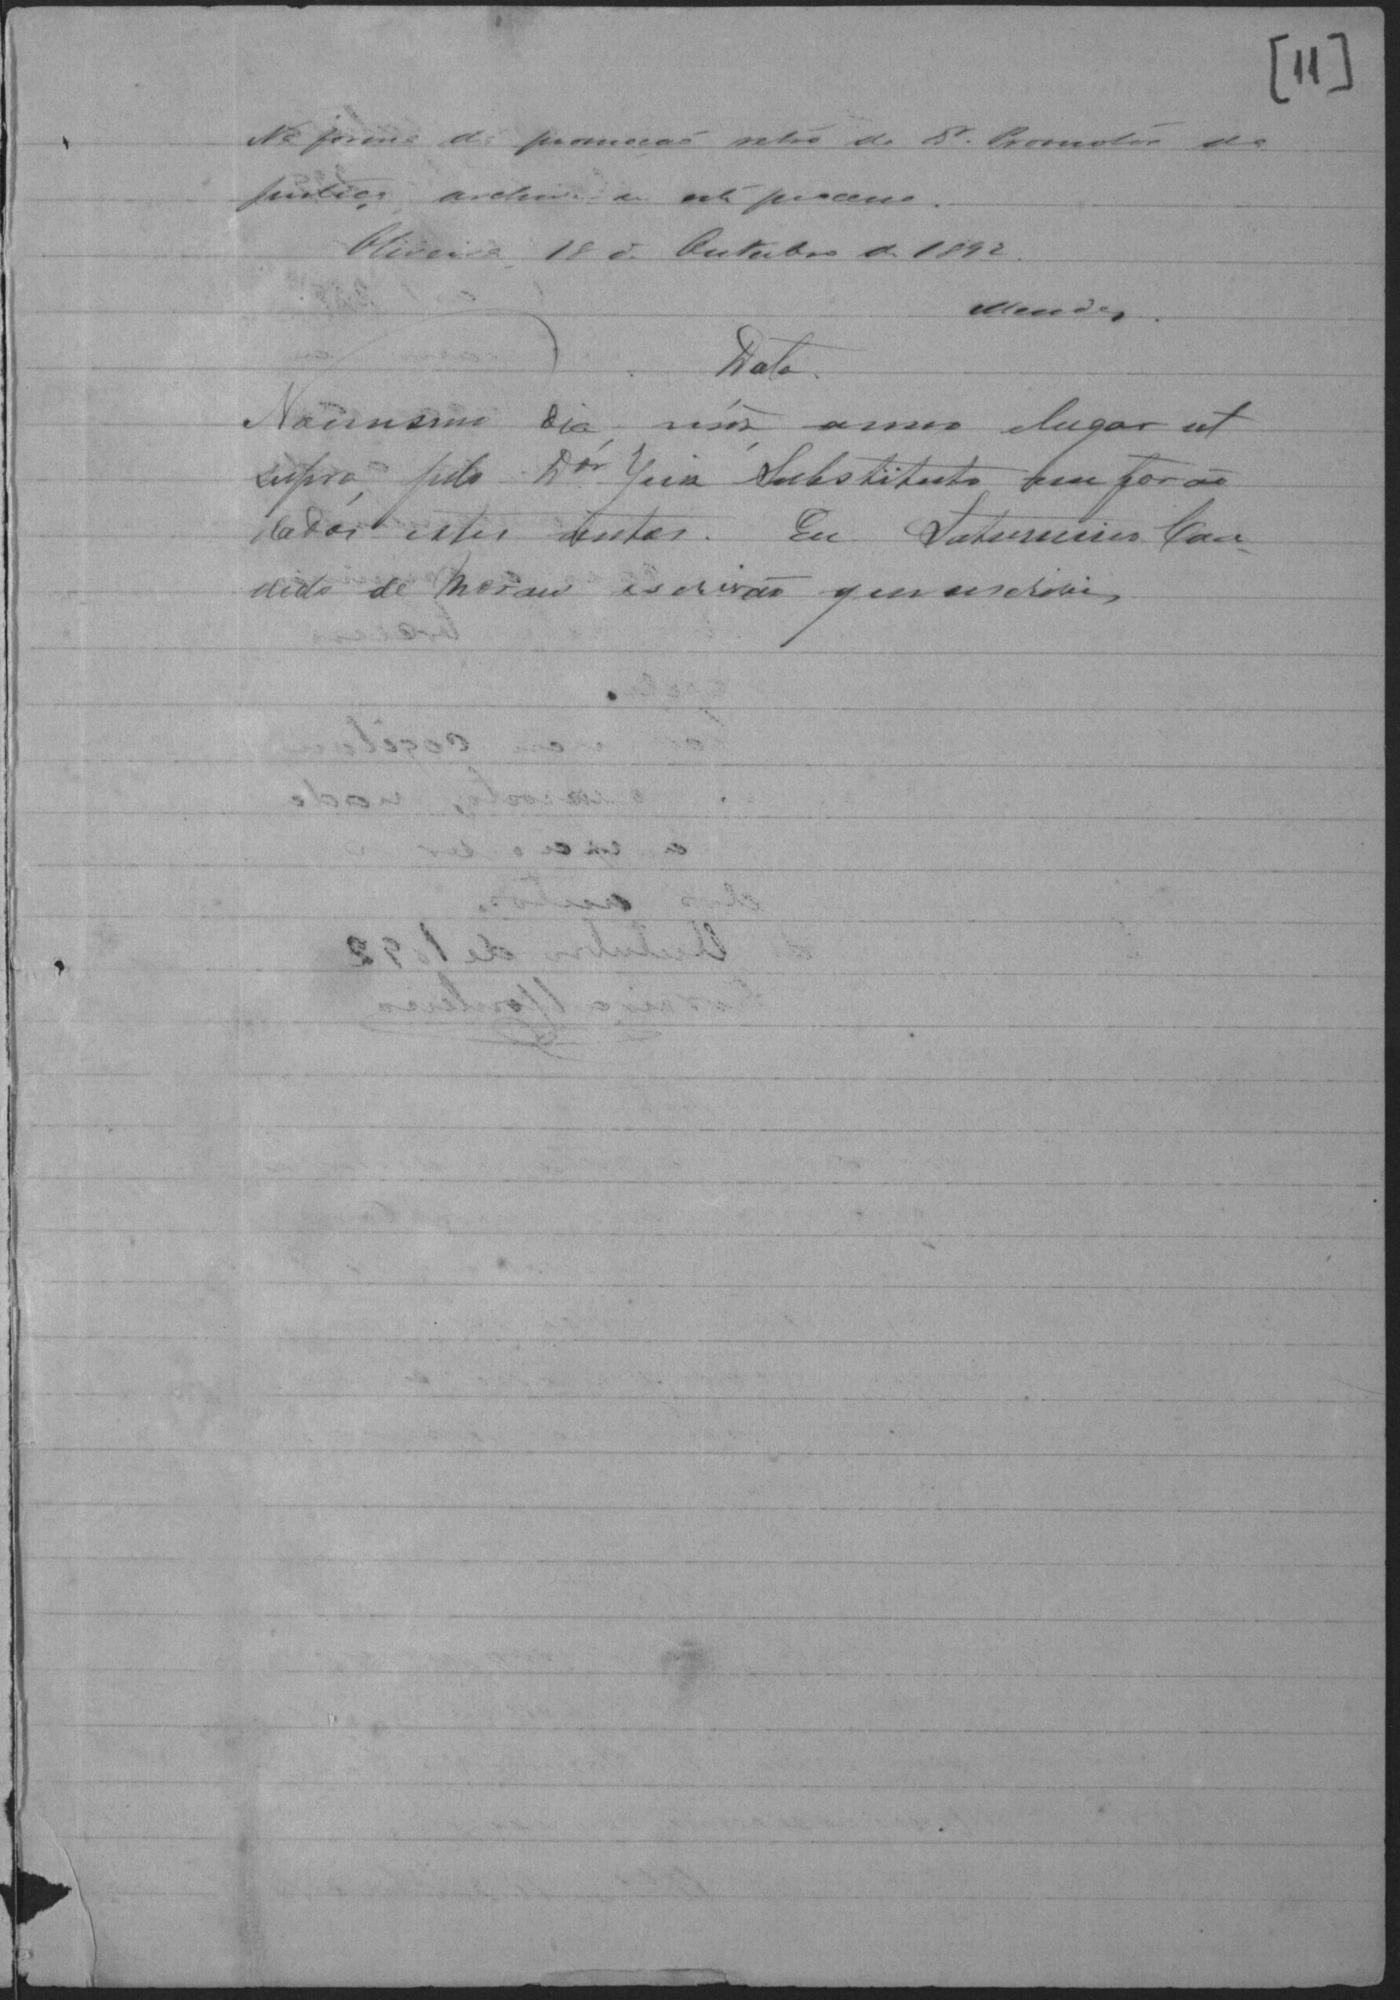 [11]
Na forma da promoção retro do Dr. Promotor da
justiça, archive-se este processo.
Oliveira, 18 de Outubro de 1892.
Mendes.
Data.
No mesmo dia, mês, anno e lugar ut
supra, pelo Dor Juiz Substituto me forão
dados estes autos. Eu Saturnino Can-
dido de Moraes escrivão que escrevi,